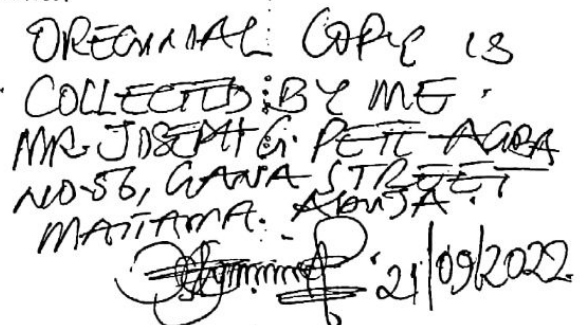 OREGINAL COPY IS
COLLECTED: BY ME.
MR. JOSEPH G. PETE AGBA
NO-56, GANA STREET
MAITAMA. ABUJA.
21/09/2022